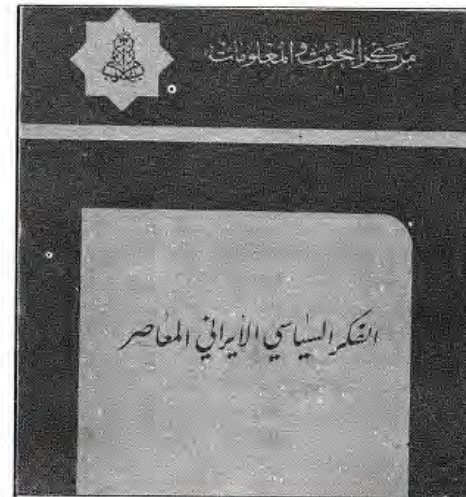 مركز البحوث والمعلومات
الفكر السياسي الإيراني المعاصر